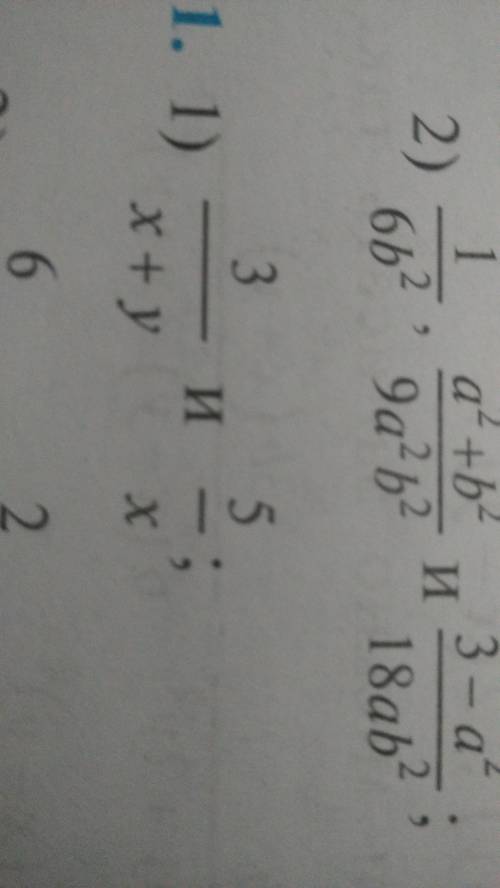 2) 1/6b², a²+b²/9a²b² и 3 − a²/18ab²;
1. 1) 3/x + y и 5/x;
6 2